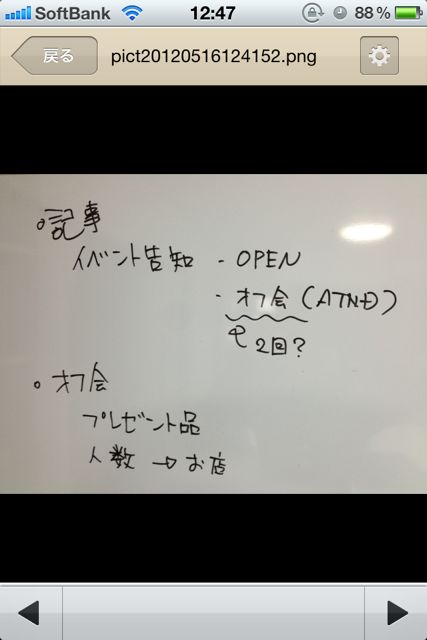 SoftBank 12:47 88%
戻る pict20120516124152.png
○記事
イベント告知 - OPEN
- オフ会 (ATND)
2回?
○ オフ会
プレゼント品
人数 → お店